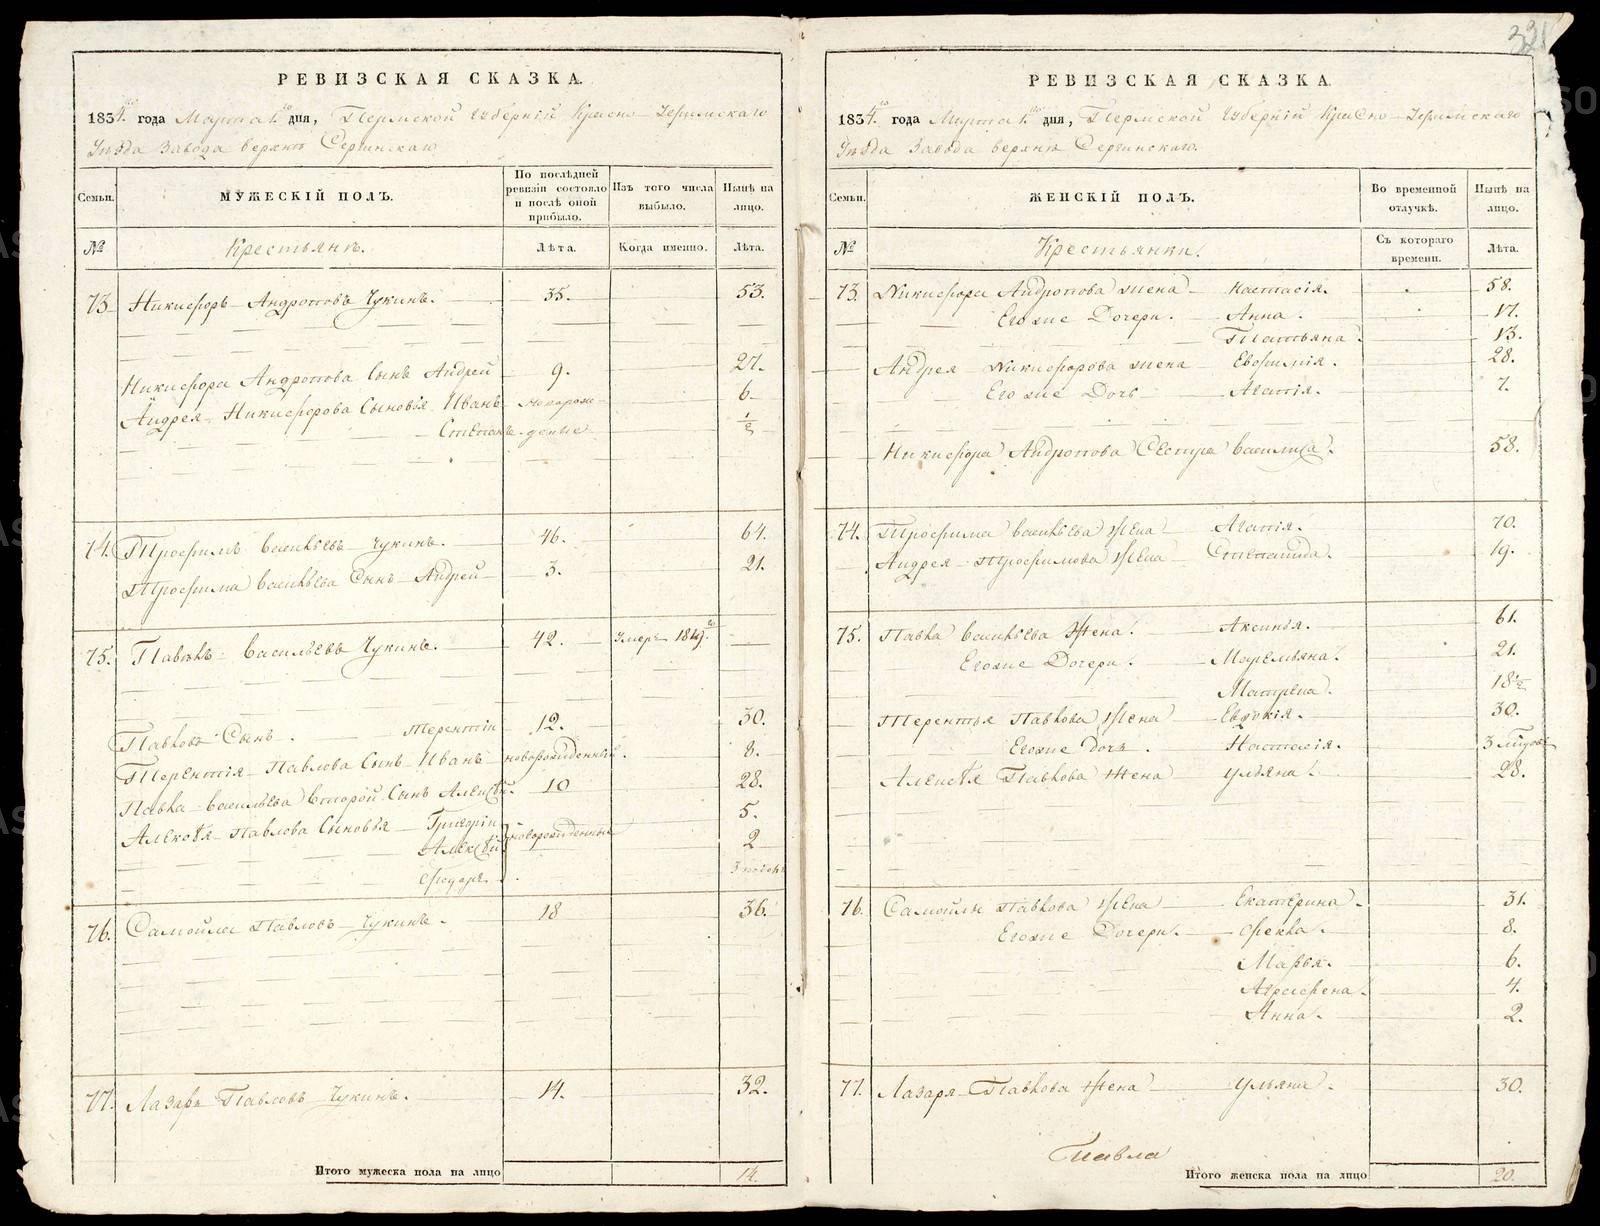 321
РЕВИЗСКАЯ СКАЗКА.
1834 года Марта 1 дня, Пермской Губерніи Красно-Уфимскаго
Уѣзда Завода верхнѣ Сергинскаго
Семьи. МУЖЕСКІЙ ПОЛЪ. По послѣдней ревизіи состояло и послѣ оной прибыло. Изъ того числа выбыло. Нынѣ на лицо.
№ Крестьянъ. Лѣта. Когда именно. Лѣта.
73 Никифоръ Андроповъ Чукинъ. 35. 53.
Никифора Андропова Сынъ Андрей 9. 27.
Андрея Никифорова Сыновья Иванъ новорож- 6
Степанъ деные 1/2
74. Трофимъ Васильевъ Чукинъ. 46. 64.
Трофима Васильева Сынъ Андрей 3. 21.
75. Павелъ Васильевъ Чукинъ. 42. Умеръ 1819.
Павловъ Сынъ. Терентій 12. 30.
Терентія Павлова Сынъ Иванъ новорожденный. 8.
Павла Васильева второй Сынъ Алексѣй. 10 28.
Алексѣя Павлова Сыновья Григорій новорожденные 5.
Алексѣй 2
Федоръ 3 недель
76. Самойла Павловъ Чукинъ. 18 36.
77. Лазарь Павловъ Чукинъ. 14. 32.
Итого мужеска пола на лицо 14.
РЕВИЗСКАЯ СКАЗКА.
1834 года Марта 1 дня, Пермской Губерніи Красно-Уфимскаго
Уѣзда Завода верхнѣ Сергинскаго.
Семьи. ЖЕНСКІЙ ПОЛЪ. Во временной отлучкѣ. Нынѣ на лицо.
№ Крестьянки. Съ котораго времени. Лѣта.
73. Никифора Андропова жена Настасія. 58.
Егоже Дочери. Анна. 17.
Татьяна. 13.
Андрея Никифорова жена Евфимія. 28.
Егоже Дочь Агапія. 7.
Никифора Андропова Сестра Василиса. 58.
74. Трофима Васильева Жена Агапія. 70.
Андрея Трофимова Жена Степанида. 19.
75. Павла Васильева Жена. Аксинья. 61.
Егоже Дочери. Маремьяна. 21.
Матрена. 18 1/2
Терентья Павлова Жена Евдокія. 30.
Егоже Дочь. Настасія.
Алексѣя Павлова Жена Ульяна. 28.
76. Самойлы Павлова Жена Екатерина. 31.
Егоже Дочери. Фекла. 8.
Марья. 6.
Аграфена. 4.
Анна. 2.
77. Лазаря Павлова Жена Ульяна. 30.
Павла
Итого женска пола на лицо 20.